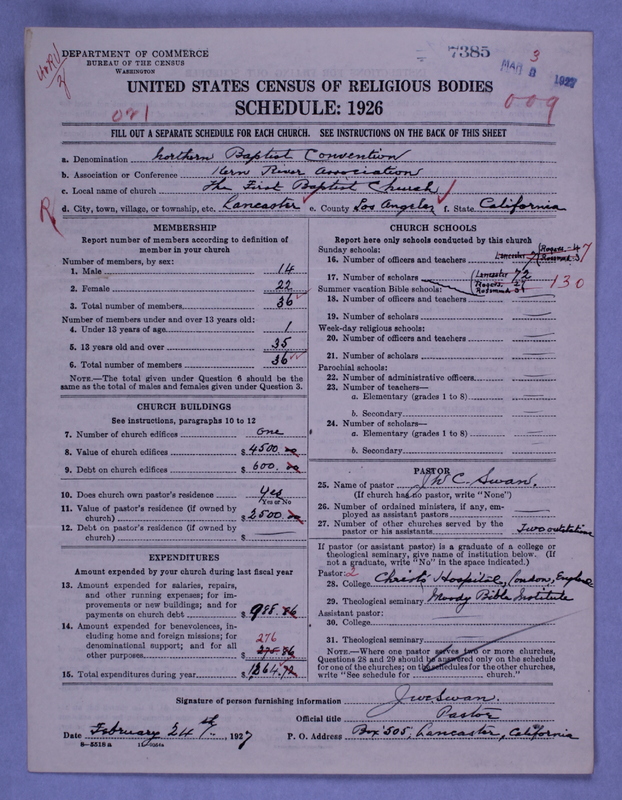 DEPARTMENT OF COMMERCE
BUREAU OF THE CENSUS
WASHINGTON
7385
MAR 3 1927
UNITED STATES CENSUS OF RELIGIOUS BODIES
SCHEDULE: 1926
091
009
FILL OUT A SEPARATE SCHEDULE FOR EACH CHURCH. SEE INSTRUCTIONS ON THE BACK OF THIS SHEET
a. Denomination Northern Baptist Convention
b. Association or Conference Kern River Association
c. Local name of church The First Baptist Church
d. City, town, village, or township, etc. Lancaster e. County Los Angeles f. State California
MEMBERSHIP
Report number of members according to definition of
member in your church
Number of members, by sex:
1. Male 14
2. Female 22
3. Total number of members 36
Number of members under and over 13 years old:
4. Under 13 years of age 1
5. 13 years old and over 35
6. Total number of members 36
NOTE.—The total given under Question 6 should be the
same as the total of males and females given under Question 3.
CHURCH BUILDINGS
See instructions, paragraphs 10 to 12
7. Number of church edifices one
8. Value of church edifices $ 4500.00
9. Debt on church edifices $ 600.00
10. Does church own pastor's residence yes
Yes or No
11. Value of pastor's residence (if owned by
church) $ 2500.00
12. Debt on pastor's residence (if owned by
church) $
EXPENDITURES
Amount expended by your church during last fiscal year
13. Amount expended for salaries, repairs,
and other running expenses; for im-
provements or new buildings; and for
payments on church debt $ 988.86
14. Amount expended for benevolences, in-
cluding home and foreign missions; for
denominational support; and for all
other purposes $ 275.86
276
15. Total expenditures during year $ 1264.72
CHURCH SCHOOLS
Report here only schools conducted by this church
Sunday schools:
16. Number of officers and teachers Lancaster 7 Rogers 4 Rosamond 3
17. Number of scholars Lancaster 72 Rogers 27 Rosamond 31 130
Summer vacation Bible schools:
18. Number of officers and teachers
19. Number of scholars
Week-day religious schools:
20. Number of officers and teachers
21. Number of scholars
Parochial schools:
22. Number of administrative officers
23. Number of teachers—
a. Elementary (grades 1 to 8)
b. Secondary
24. Number of scholars—
a. Elementary (grades 1 to 8)
b. Secondary
PASTOR
25. Name of pastor J W C Swan.
(If church has no pastor, write "None")
26. Number of ordained ministers, if any, em-
ployed as assistant pastors
27. Number of other churches served by the
pastor or his assistants Two outstations
If pastor (or assistant pastor) is a graduate of a college or
theological seminary, give name of institution below. (If
not a graduate, write "No" in the space indicated.)
Pastor: 2
28. College Christ's Hospital, London, England
29. Theological seminary Moody Bible Institute
Assistant pastor:
30. College
31. Theological seminary
NOTE.—Where one pastor serves two or more churches,
Questions 28 and 29 should be answered only on the schedule
for one of the churches; on the schedules for the other churches,
write "See schedule for church."
Signature of person furnishing information J W C Swan.
Official title Pastor
Date February 24th, 1927 P. O. Address Box 505, Lancaster, California
8—5518 a